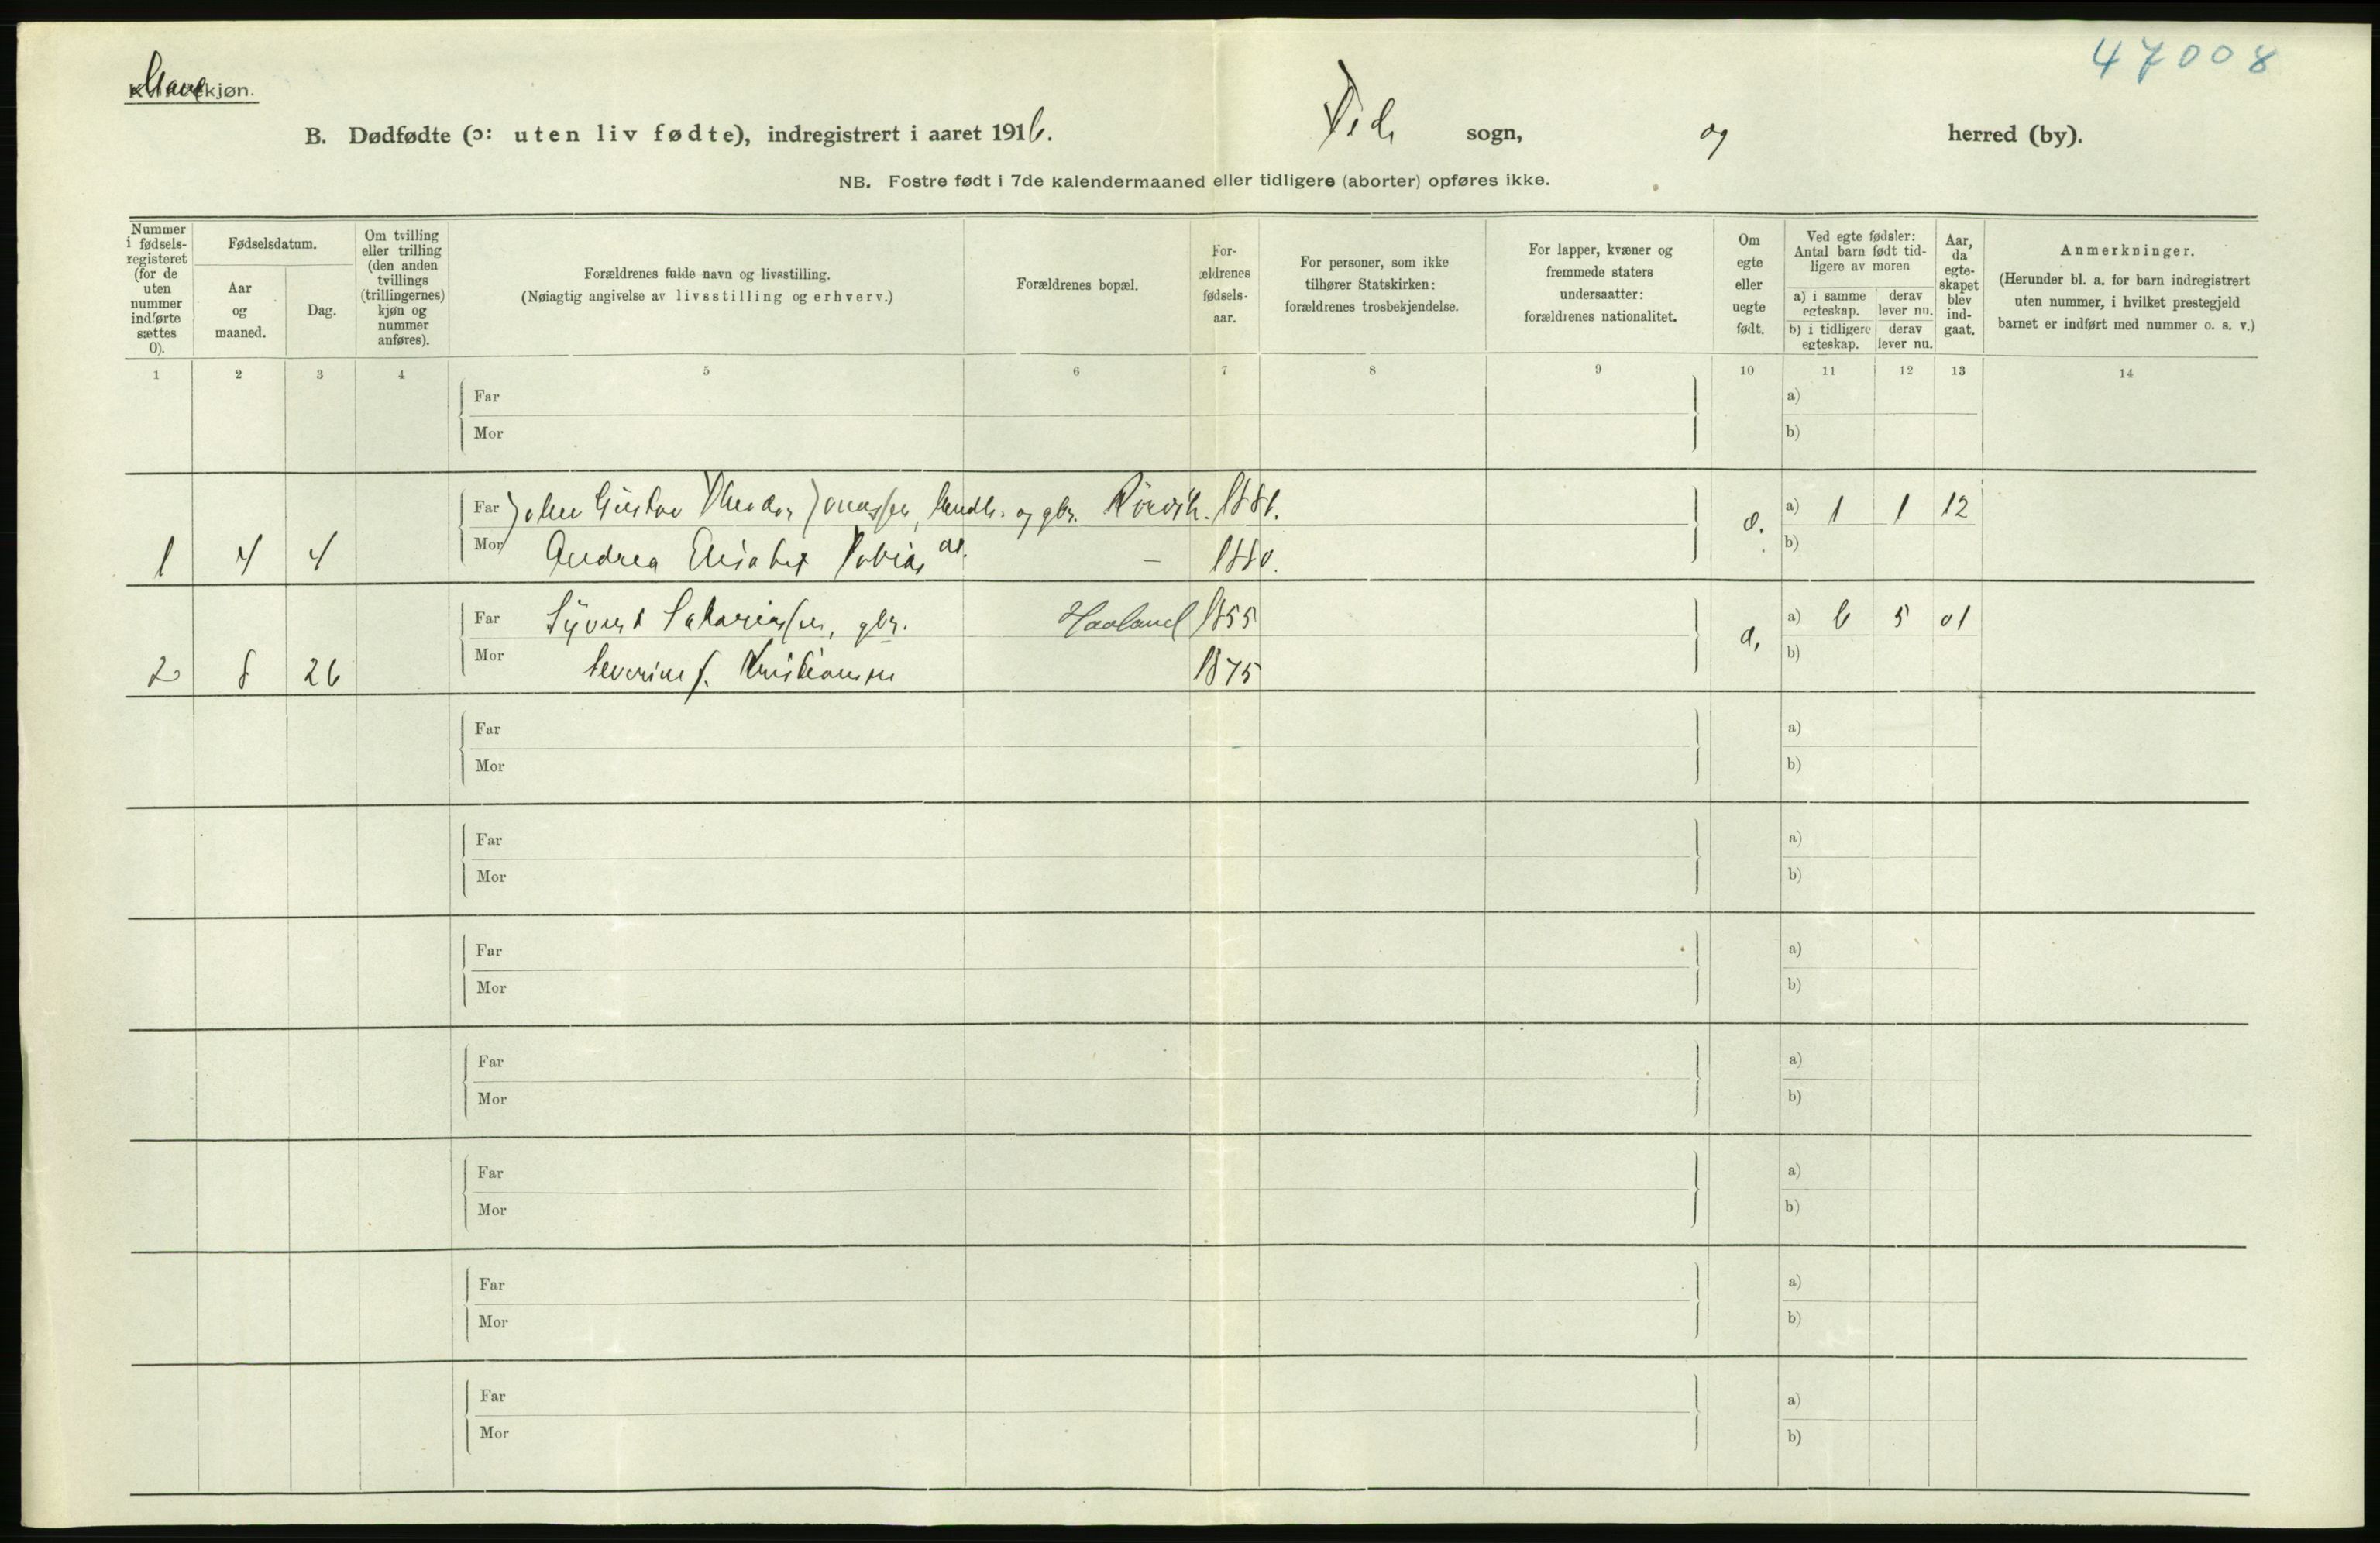 47008
kjøn.
B. Dødfødte (ɔ: uten liv fødte), indregistrert i aaret 1916. sogn, og herred (by).
NB. Fostre født i 7de kalendermaaned eller tidligere (aborter) opføres ikke.
Nummer i fødselsregisteret (for de uten nummer indførte sættes 0).
Fødselsdatum.
Aar og maaned.
Dag.
Om tvilling eller trilling (den anden tvillings (trillingernes) kjøn og nummer anføres).
Forældrenes fulde navn og livsstilling.
(Nøiagtig angivelse av livsstilling og erhverv.)
Forældrenes bopæl.
Forældrenes fødselsaar.
For personer, som ikke tilhører Statskirken: forældrenes trosbekjendelse.
For lapper, kvæner og fremmede staters undersaatter: forældrenes nationalitet.
Om egte eller uegte født.
Ved egte fødsler: Antal barn født tidligere av moren
a) i samme egteskap.
derav lever nu.
b) i tidligere egteskap.
derav lever nu.
Aar, da egteskapet blev indgaat.
Anmerkninger.
(Herunder bl. a. for barn indregistrert uten nummer, i hvilket prestegjeld barnet er indført med nummer o. s. v.)
1 2 3 4 5 6 7 8 9 10 11 12 13 14
Far a)
Mor b)
Far Gustav Theodor Jonassen, og gbr. Rörvik. 1881. a) 1 1 12
1 4 4 Mor Andrea Elisabet Tobias 1880. b)
Far Syvert Sakariassen, gbr. Haaland 1855 a) 6 5 01
2 8 26 Mor Severine f. Kristiansen 1875 b)
Far a)
Mor b)
Far a)
Mor b)
Far a)
Mor b)
Far a)
Mor b)
Far a)
Mor b)
Far a)
Mor b)
Far a)
Mor b)